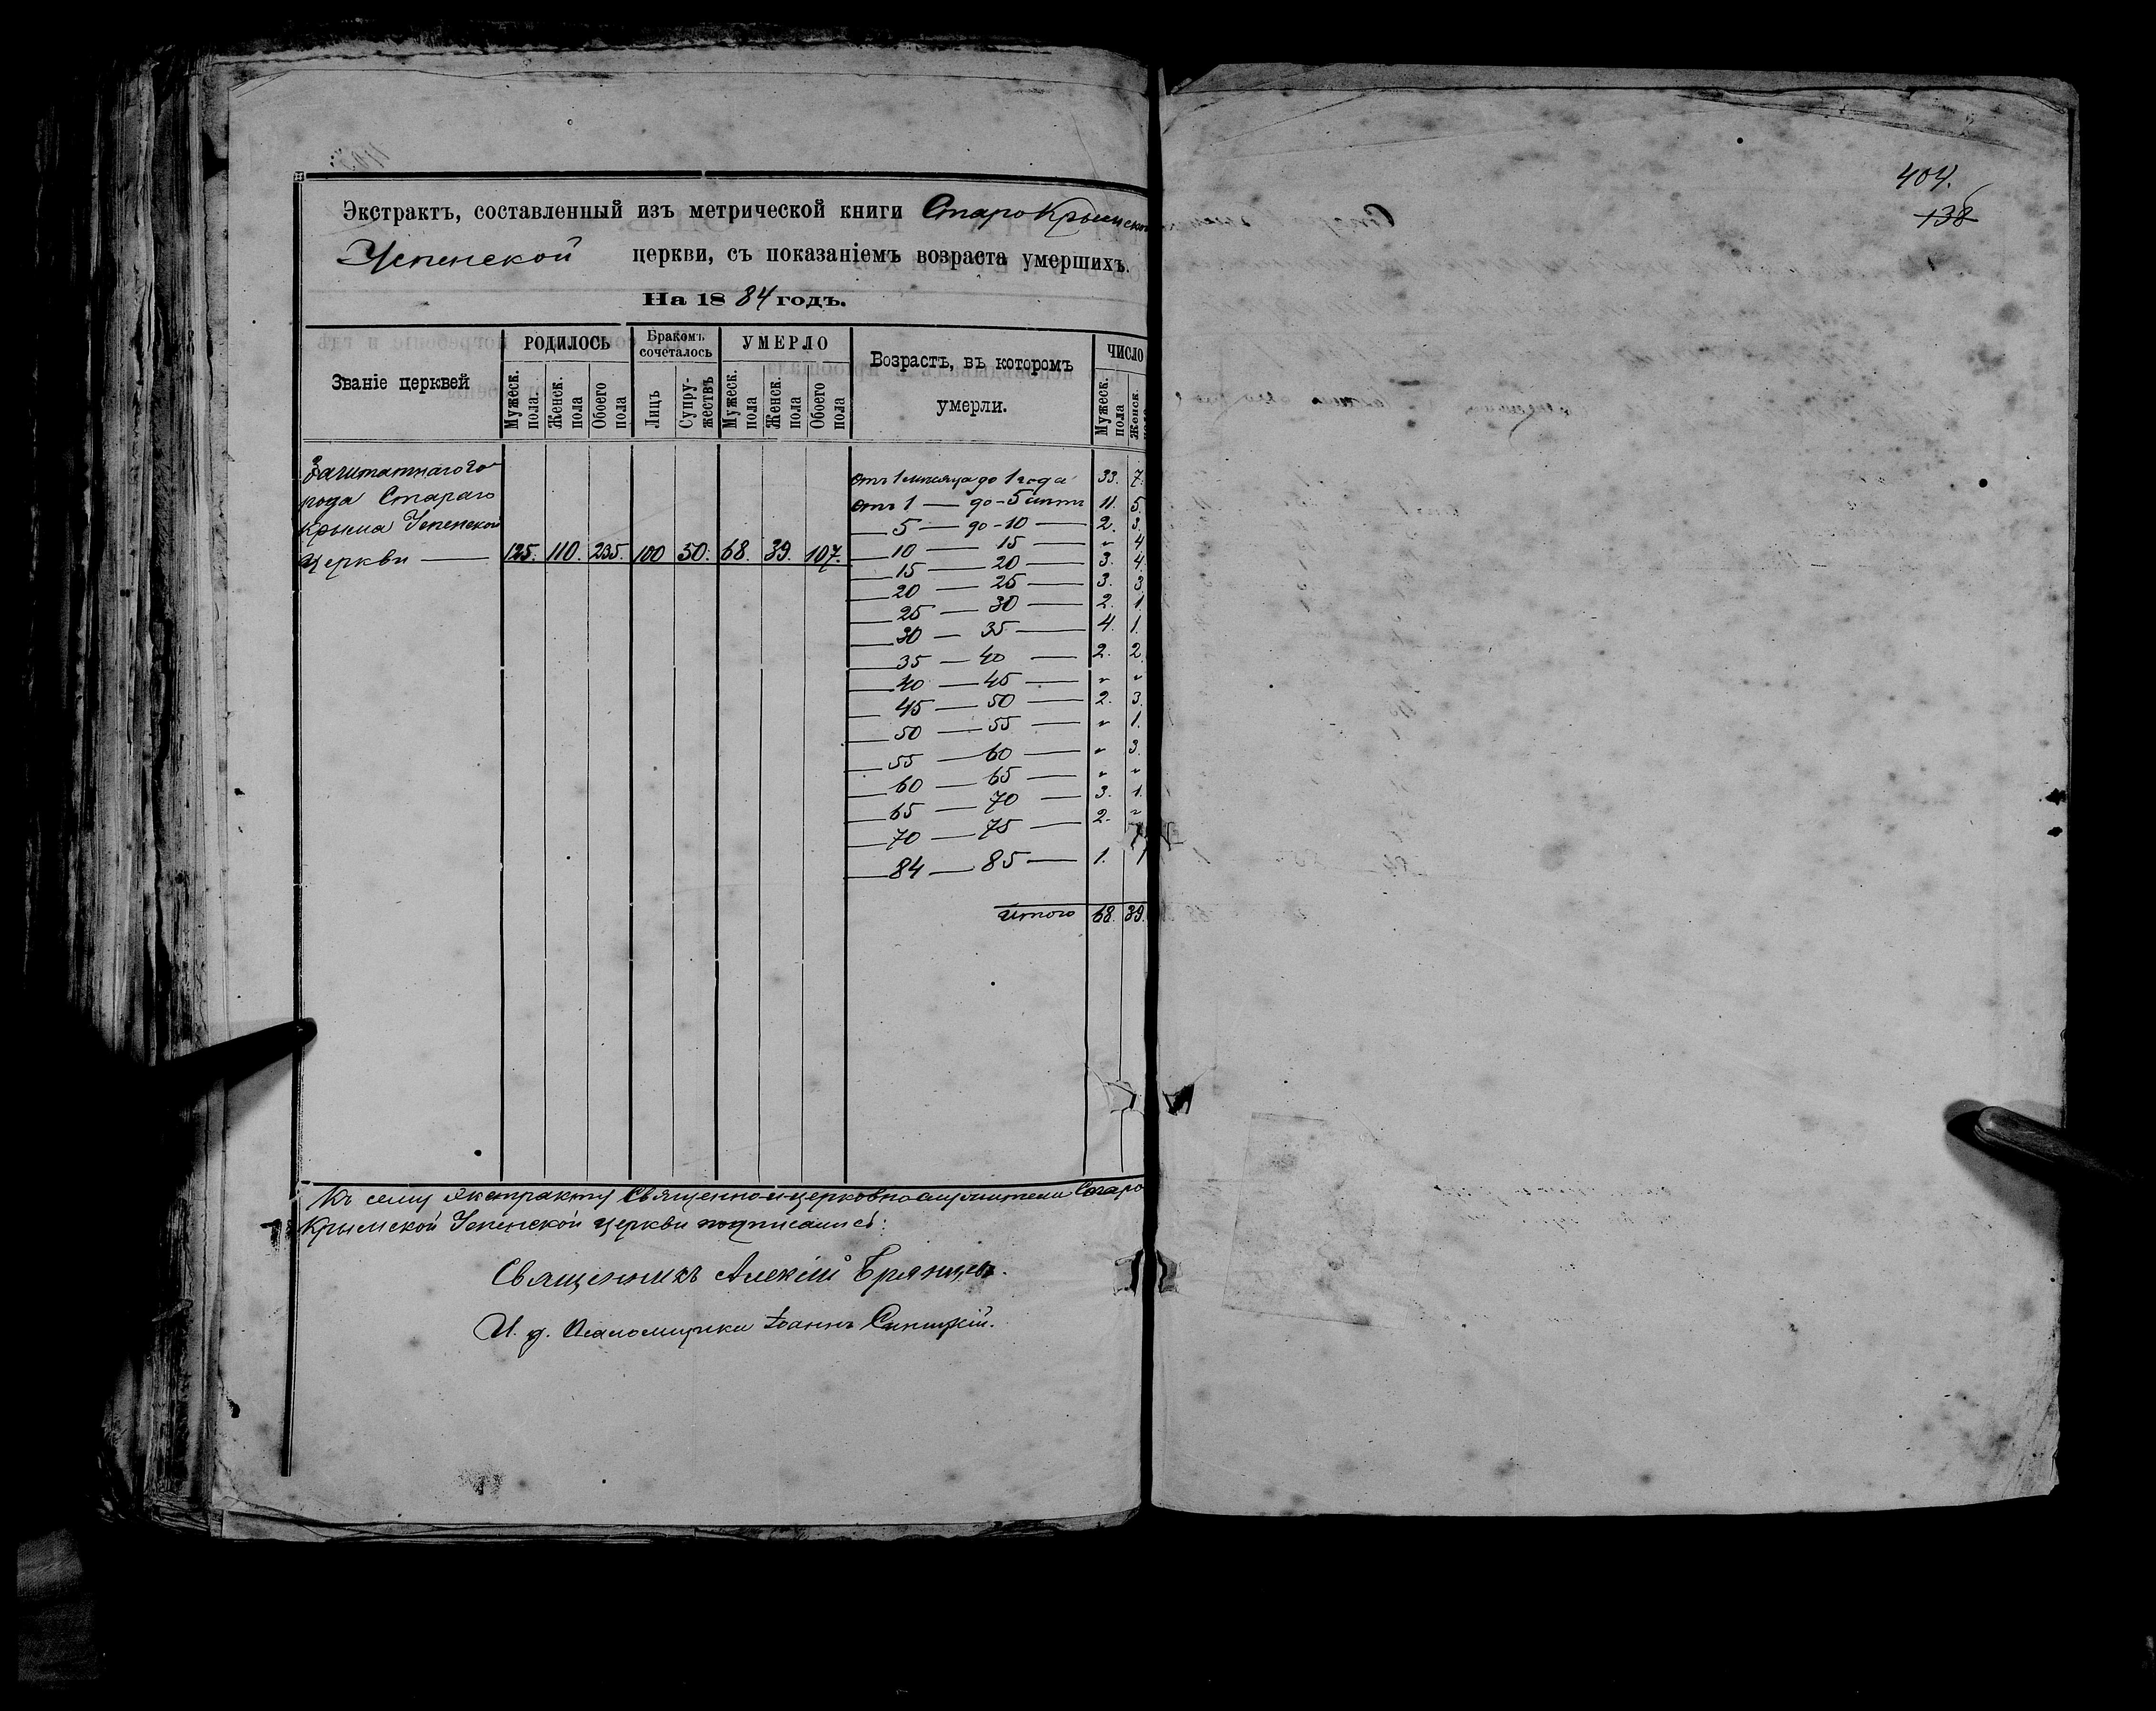 Экстрактъ, составленный изъ метрической книги Старокрымской
Успенской церкви, съ показаніемъ возраста умершихъ.
На 1884 годъ.
Званіе церквей
РОДИЛОСЬ
Мужеск. пола.
Женск. пола
Обоего пола
Бракомъ сочеталось
Лицъ
Супружествъ
УМЕРЛО
Мужеск. пола
Женск. пола
Обоего пола
Возрастъ, въ которомъ умерли.
ЧИСЛО
Мужеск. пола
Женск. пола
Заштатнаго го-
рода Стараго
Крыма Успенской
Церкви — 125. 110. 235. 100 50. 68. 39. 107.
отъ 1 мѣсяца до 1 года 33. 7.
отъ 1 — до — 5 лѣтъ 11. 5.
— 5 — до — 10 — 2. 3.
— 10 — 15 — „ 4.
— 15 — 20 — 3. 4.
— 20 — 25 — 3. 3
— 25 — 30 — 2. 1.
— 30 — 35 — 4. 1.
— 35 — 40 — 2. 2.
— 40 — 45 — „ „
— 45 — 50 — 2. 3.
— 50 — 55 — „ 1.
— 55 — 60 — „ 3.
— 60 — 65 — „ „
— 65 — 70 — 3. 1.
— 70 — 75 — 2. „
— 84 — 85 — 1. 1
Итого 68. 39.
Къ сему экстракту Священно-и-церковнослужители Старо
Крымской Успенской церкви подписались:
Священникъ Алексій Брянцевъ.
И. д. Псаломщика Іоаннъ
404.
138